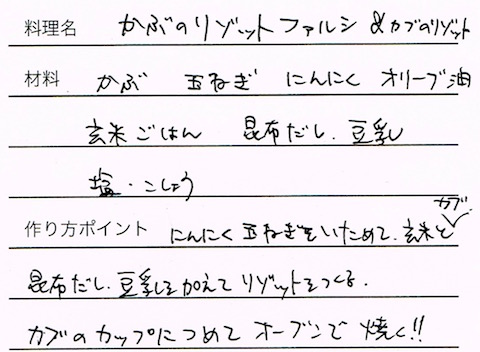 料理名 かぶのリゾットファルシ &カブのリゾット
材料 かぶ 玉ねぎ にんにく オリーブ油
玄米ごはん 昆布だし、豆乳
塩・こしょう
カブ
作り方ポイント にんにく玉ねぎをいためて、玄米と
昆布だし、豆乳を加えてリゾットをつくる。
カブのカップにつめてオーブンで焼く!!